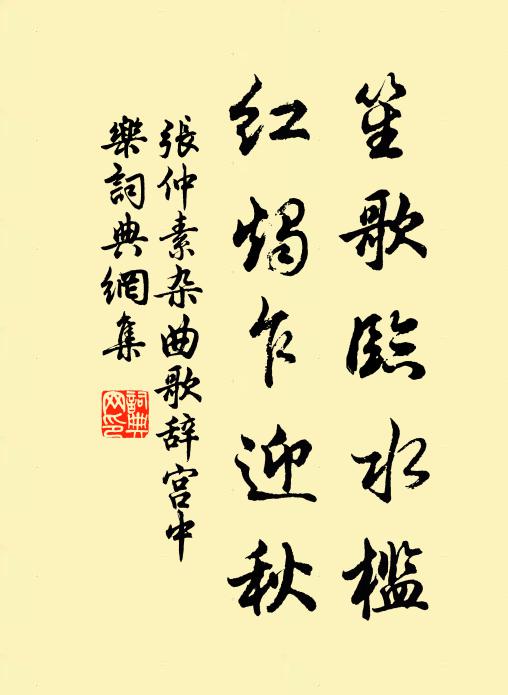 笙歌臨水檻
紅燭乍迎秋
張仲素杂曲歌辞宫中
樂詞典網集
詞典网印